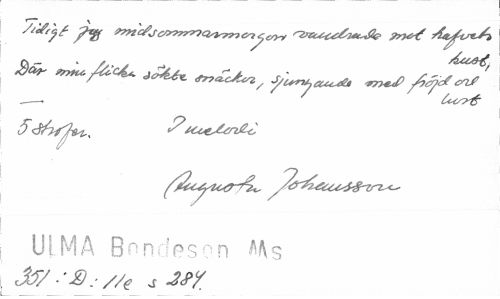 Tidigt jag midsommarmorgon vandrade mot hafvets
kust,
Där min flicka sökte snäckor, sjungande med fröjd och
lust
—
5 strofer. I melodi
Augusta Johansson
ULMA Bondeson Ms
351 : D : 11e s 284.